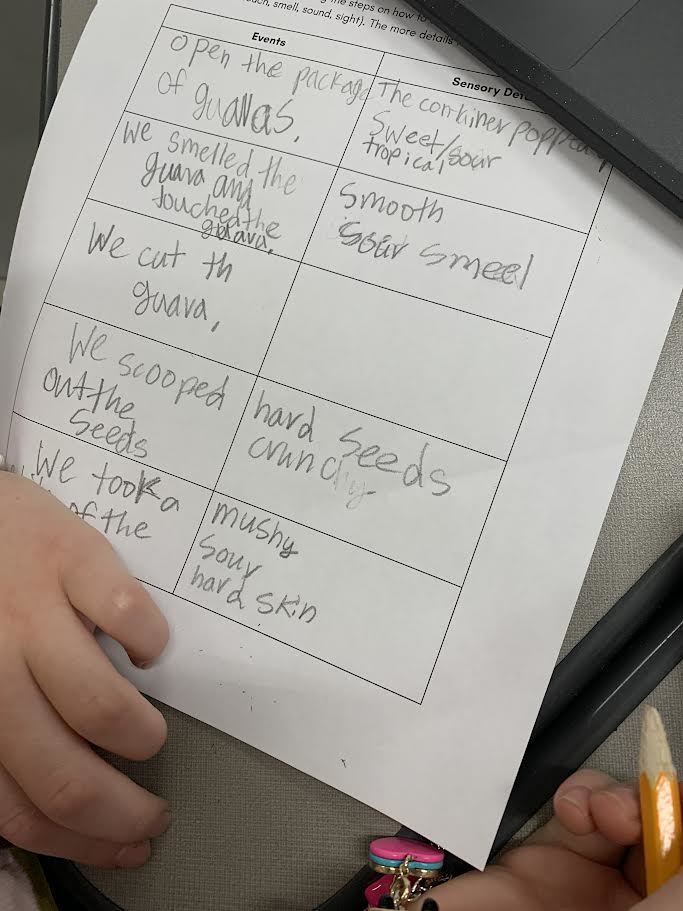 the steps on how to
uch, smell, sound, sight). The more details
Events
Sensory Det
Open the package
of guavas.
The container popped
Sweet/sour
tropical
We smelled the
guava and
touched the
guava.
Smooth
Sour smeel
We cut th
guava.
We scooped
out the
Seeds
hard seeds
crunchy
We took a
of the
mushy
Sour
hard skin